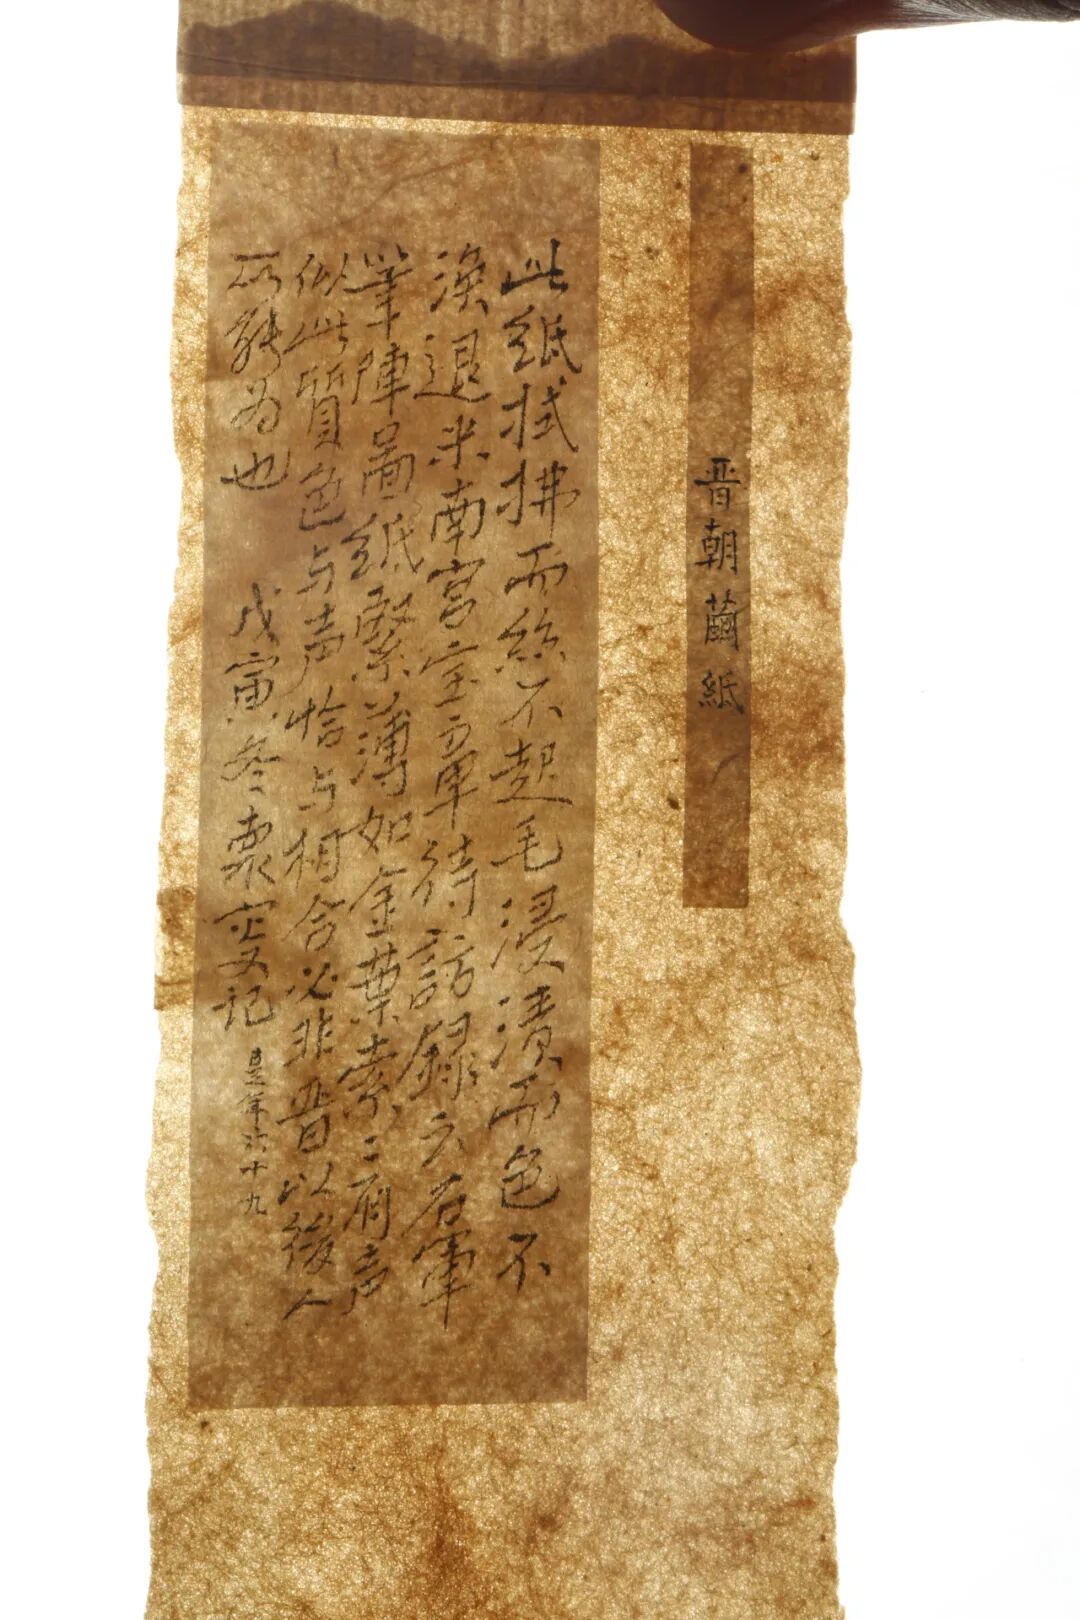 晋朝繭紙
此紙拭拂而絲不起毛浸漬而色不
渙退米南宮宝章待訪録云右軍
筆陣啚紙緊薄如金葉索〻有声
似此質色与声恰与相合必非晋以後人
所能为也
戊寅冬 记
是年六十九